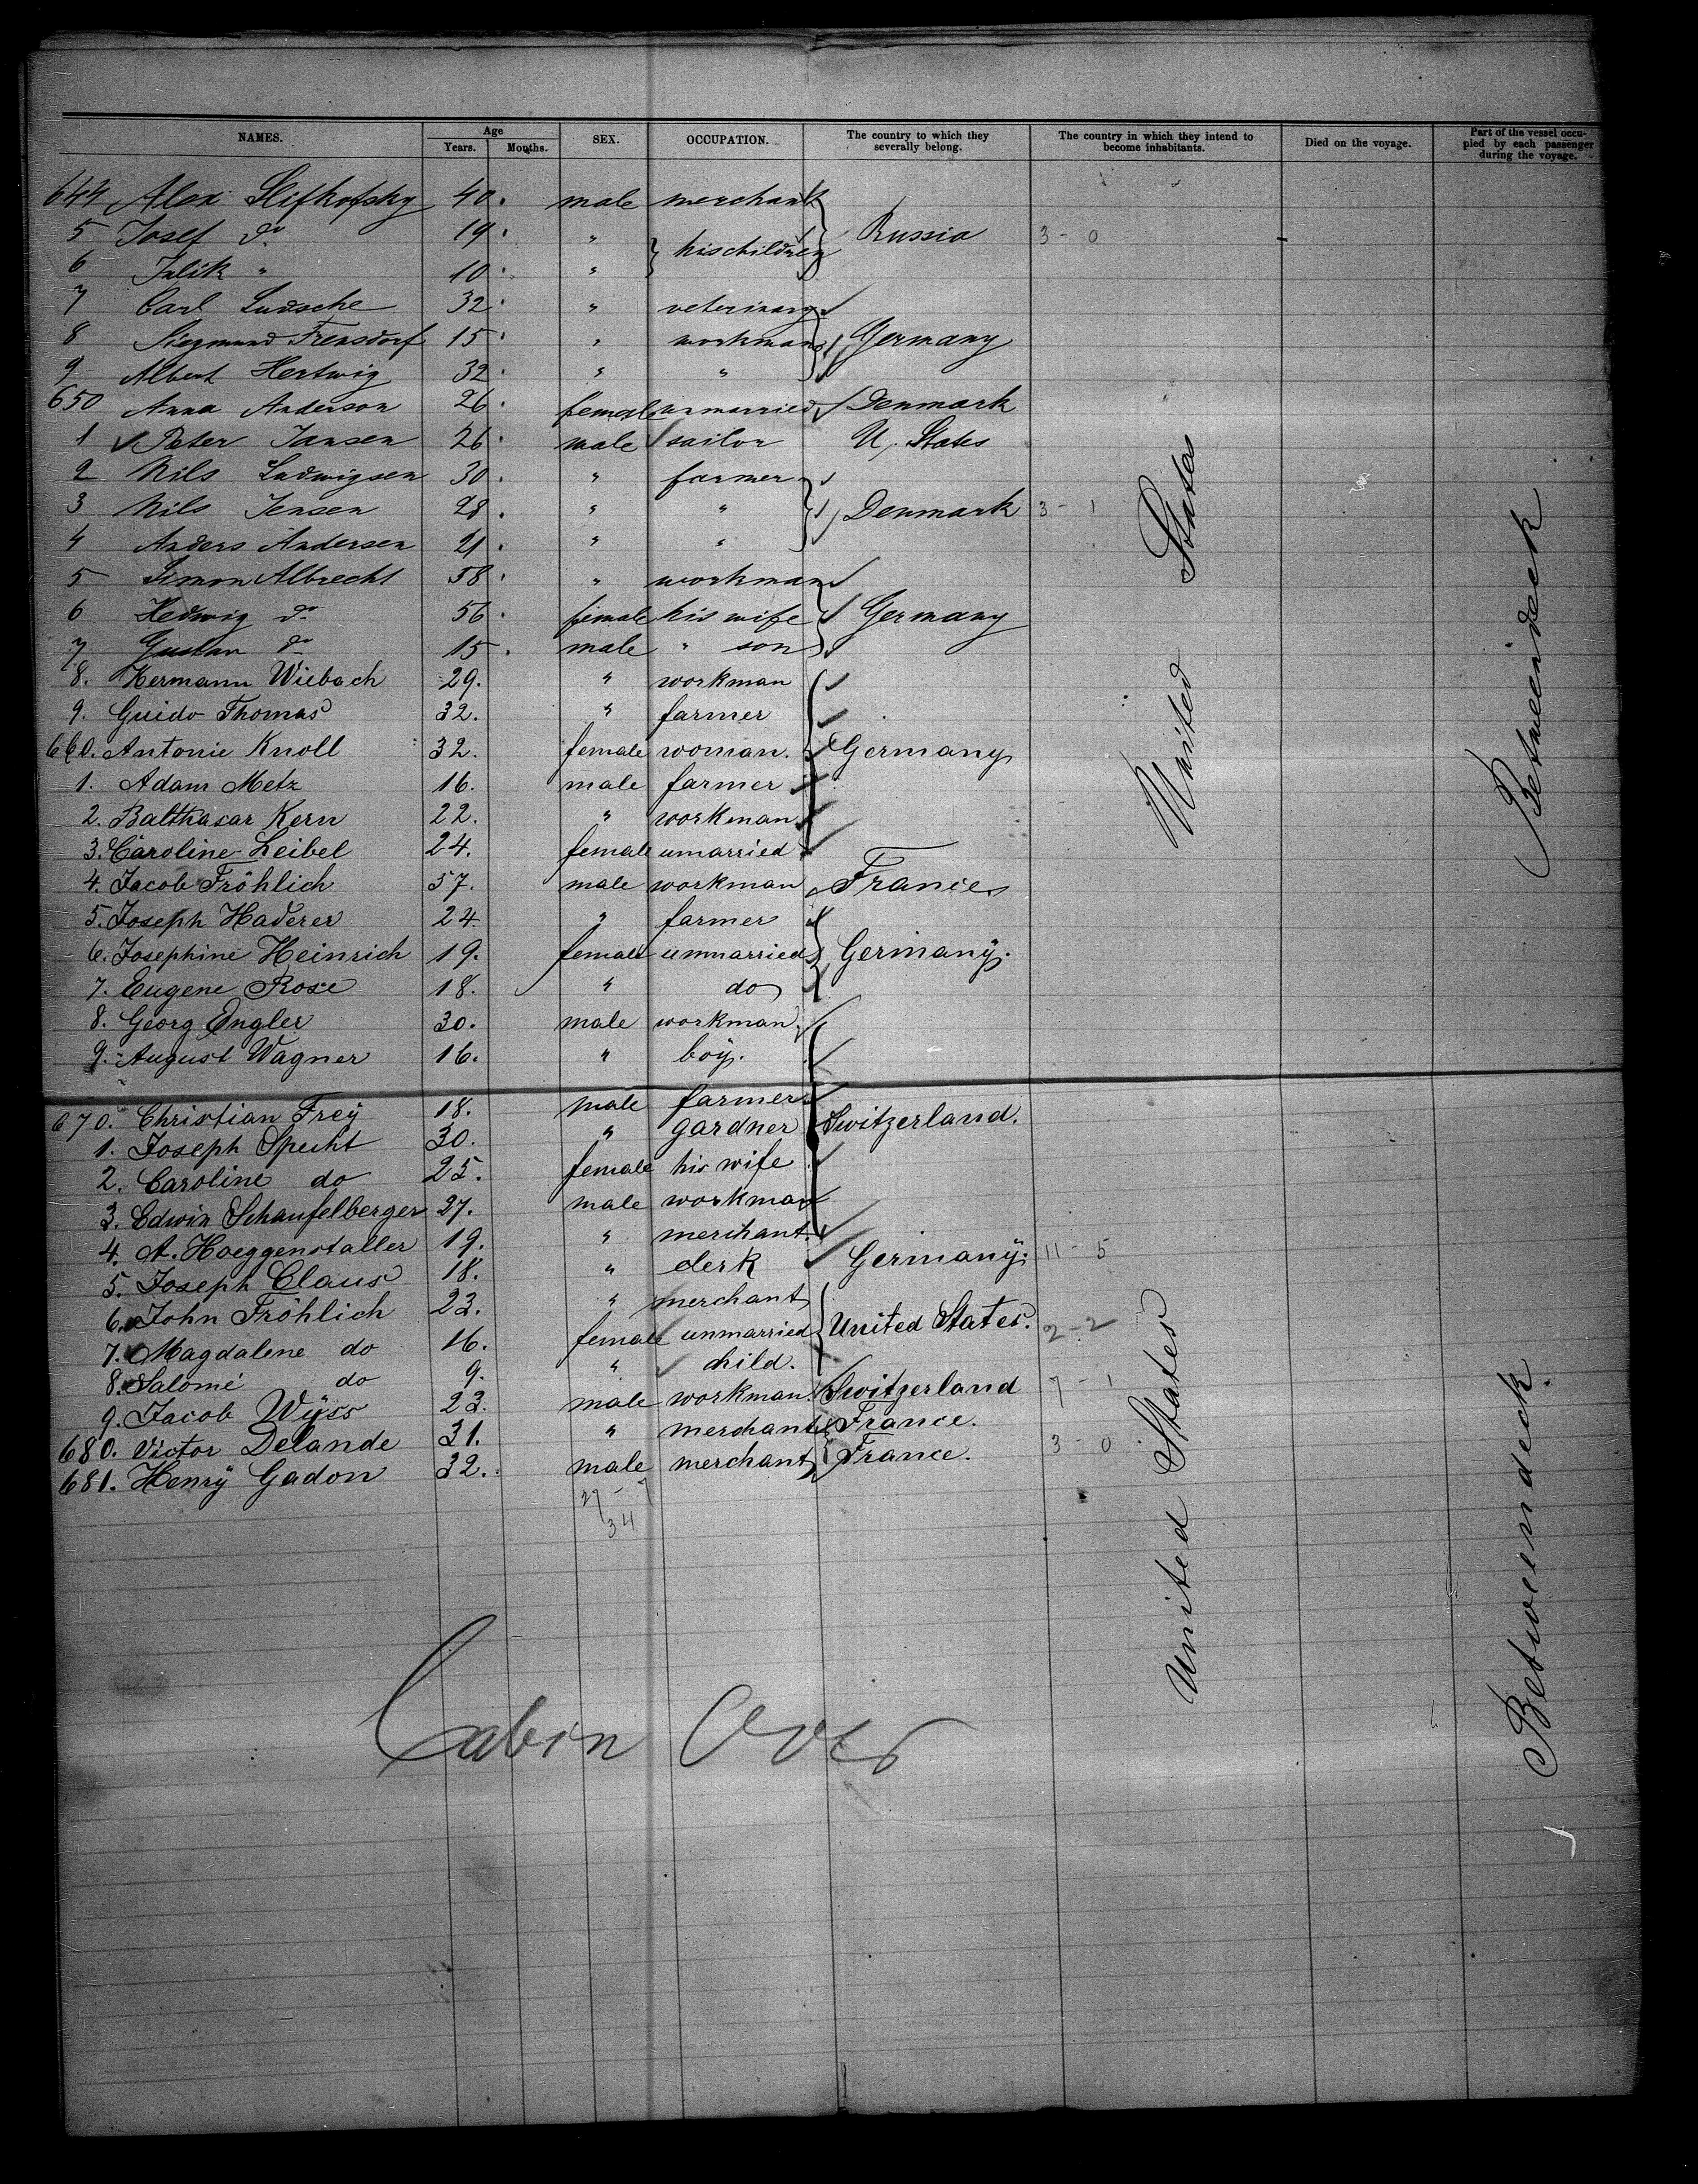 NAMES. Age Years. Months. SEX. OCCUPATION. The country to which they severally belong. The country in which they intend to become inhabitants. Died on the voyage. Part of the vessel occupied by each passenger during the voyage.
644 Alex Slifkofsky 40. male merchant
5 Josef do 19. " his children Russia 3 - 0
6 " 10. "
7 Carl Ludsche 32. " veterinary
8 Siegmund Frensdorf 15. " workman Germany
9 Albert Hertwig 32. " "
650 Anna Anderson 26. female unmarried Denmark
1 Peter Jansen 26. male sailor U. States
2 Nils Ludwigsen 30. " farmer
3 Nils Jensen 28. " " Denmark 3 - 1
4 Anders Andersen 21. " "
5 Simon Albrecht 58. " workman
6 Hedwig do 56. female his wife Germany
7 Gustav do 15. male " son
8. Hermann Wiebach 29. " workman
9. Guido Thomas 32. " farmer
660. Antonie Knoll 32. female woman. Germany
1. Adam Metz 16. male farmer
2. Balthasar Kern 22. " workman
3. Caroline Leibel 24. female umarried
4. Jacob Fröhlich 57. male workman France
5. Joseph Haderer 24. " farmer
6. Josephine Heinrich 19. female unmarried Germanÿ.
7. Eugene Rose 18. " do
8. Georg Engler 30. male workman
9. August Wagner 16. " boÿ.
670. Christian Freÿ 18. male farmer
1. Joseph Specht 30. " gardner Switzerland.
2. Caroline do 25. female his wife
3. Edwin Schaufelberger 27. male workman
4. A. Hoeggenstaller 19. " merchant.
5. Joseph Claus 18. " clerk Germanÿ. 11 - 5
6. John Fröhlich 23. " merchant
7. Magdalene do 16. female unmarried United States. 2 - 2
8. Salomé do 9. " child.
9. Jacob Wÿss 23. male workman Switzerland 7 - 1
680. Victor Delande 31. " merchant France.
681. Henrÿ Gadon 32. male merchant France. 3 - 0
27 - 7
34
United States
Betweendeck
United States
Betweendeck
Cabin Over